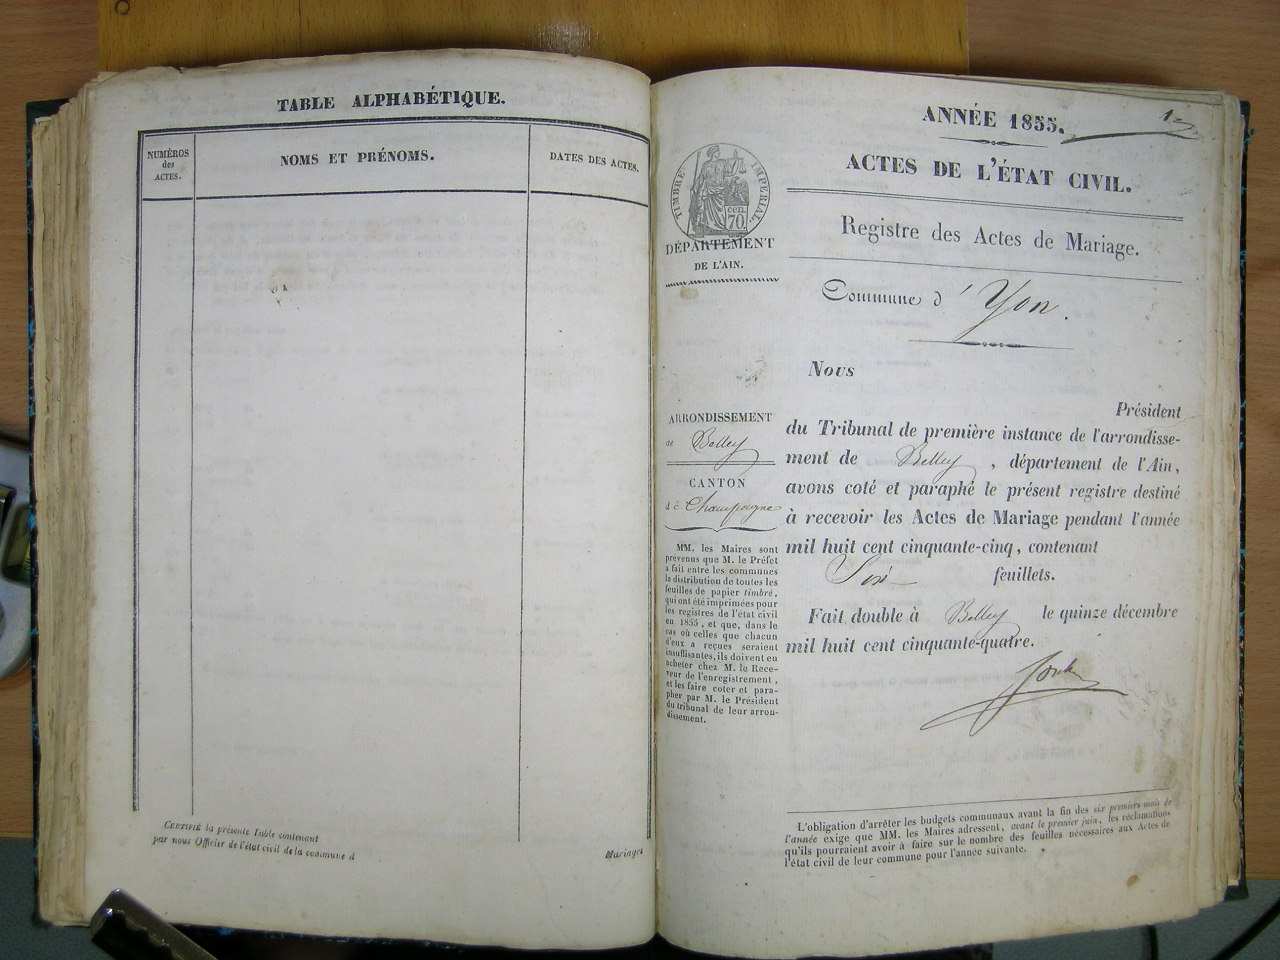 TABLE ALPHABÉTIQUE.
NUMÉROS
des
ACTES.
NOMS ET PRÉNOMS.
DATES DES ACTES.
CERTIFIÉ la présente Table contenant
Mariages
par nous Officier de l'état civil de la commune d
ANNÉE 1855.
ACTES DE L'ÉTAT CIVIL.
TIMBRE IMPÉRIAL.
cen.
70.
DÉPARTEMENT
DE L'AIN.
Registre des Actes de Mariage.
Commune d' Yon.
Nous
Président
du Tribunal de première instance de l'arrondisse-
ment de Belley, département de l'Ain,
avons coté et paraphé le présent registre destiné
à recevoir les Actes de Mariage pendant l'année
mil huit cent cinquante-cinq, contenant
feuillets.
Fait double à Belley le quinze décembre
mil huit cent cinquante-quatre.
ARRONDISSEMENT
de Belley
CANTON
de Champagne
MM. les Maires sont
prévenus que M. le Préfet
a fait entre les communes
la distribution de toutes les
feuilles de papier timbré,
qui ont été imprimées pour
les registres de l'état civil
en 1855, et que, dans le
cas où celles que chacun
d'eux a reçues seraient
insuffisantes, ils doivent en
acheter chez M. le Rece-
veur de l'enregistrement,
et les faire coter et para-
pher par M. le Président
du tribunal de leur arron-
dissement.
L'obligation d'arrêter les budgets communaux avant la fin des six premiers mois de
l'année exige que MM. les Maires adressent, avant le premier juin, les réclamations
qu'ils pourraient avoir à faire sur le nombre des feuilles nécessaires aux Actes de
l'état civil de leur commune pour l'année suivante.